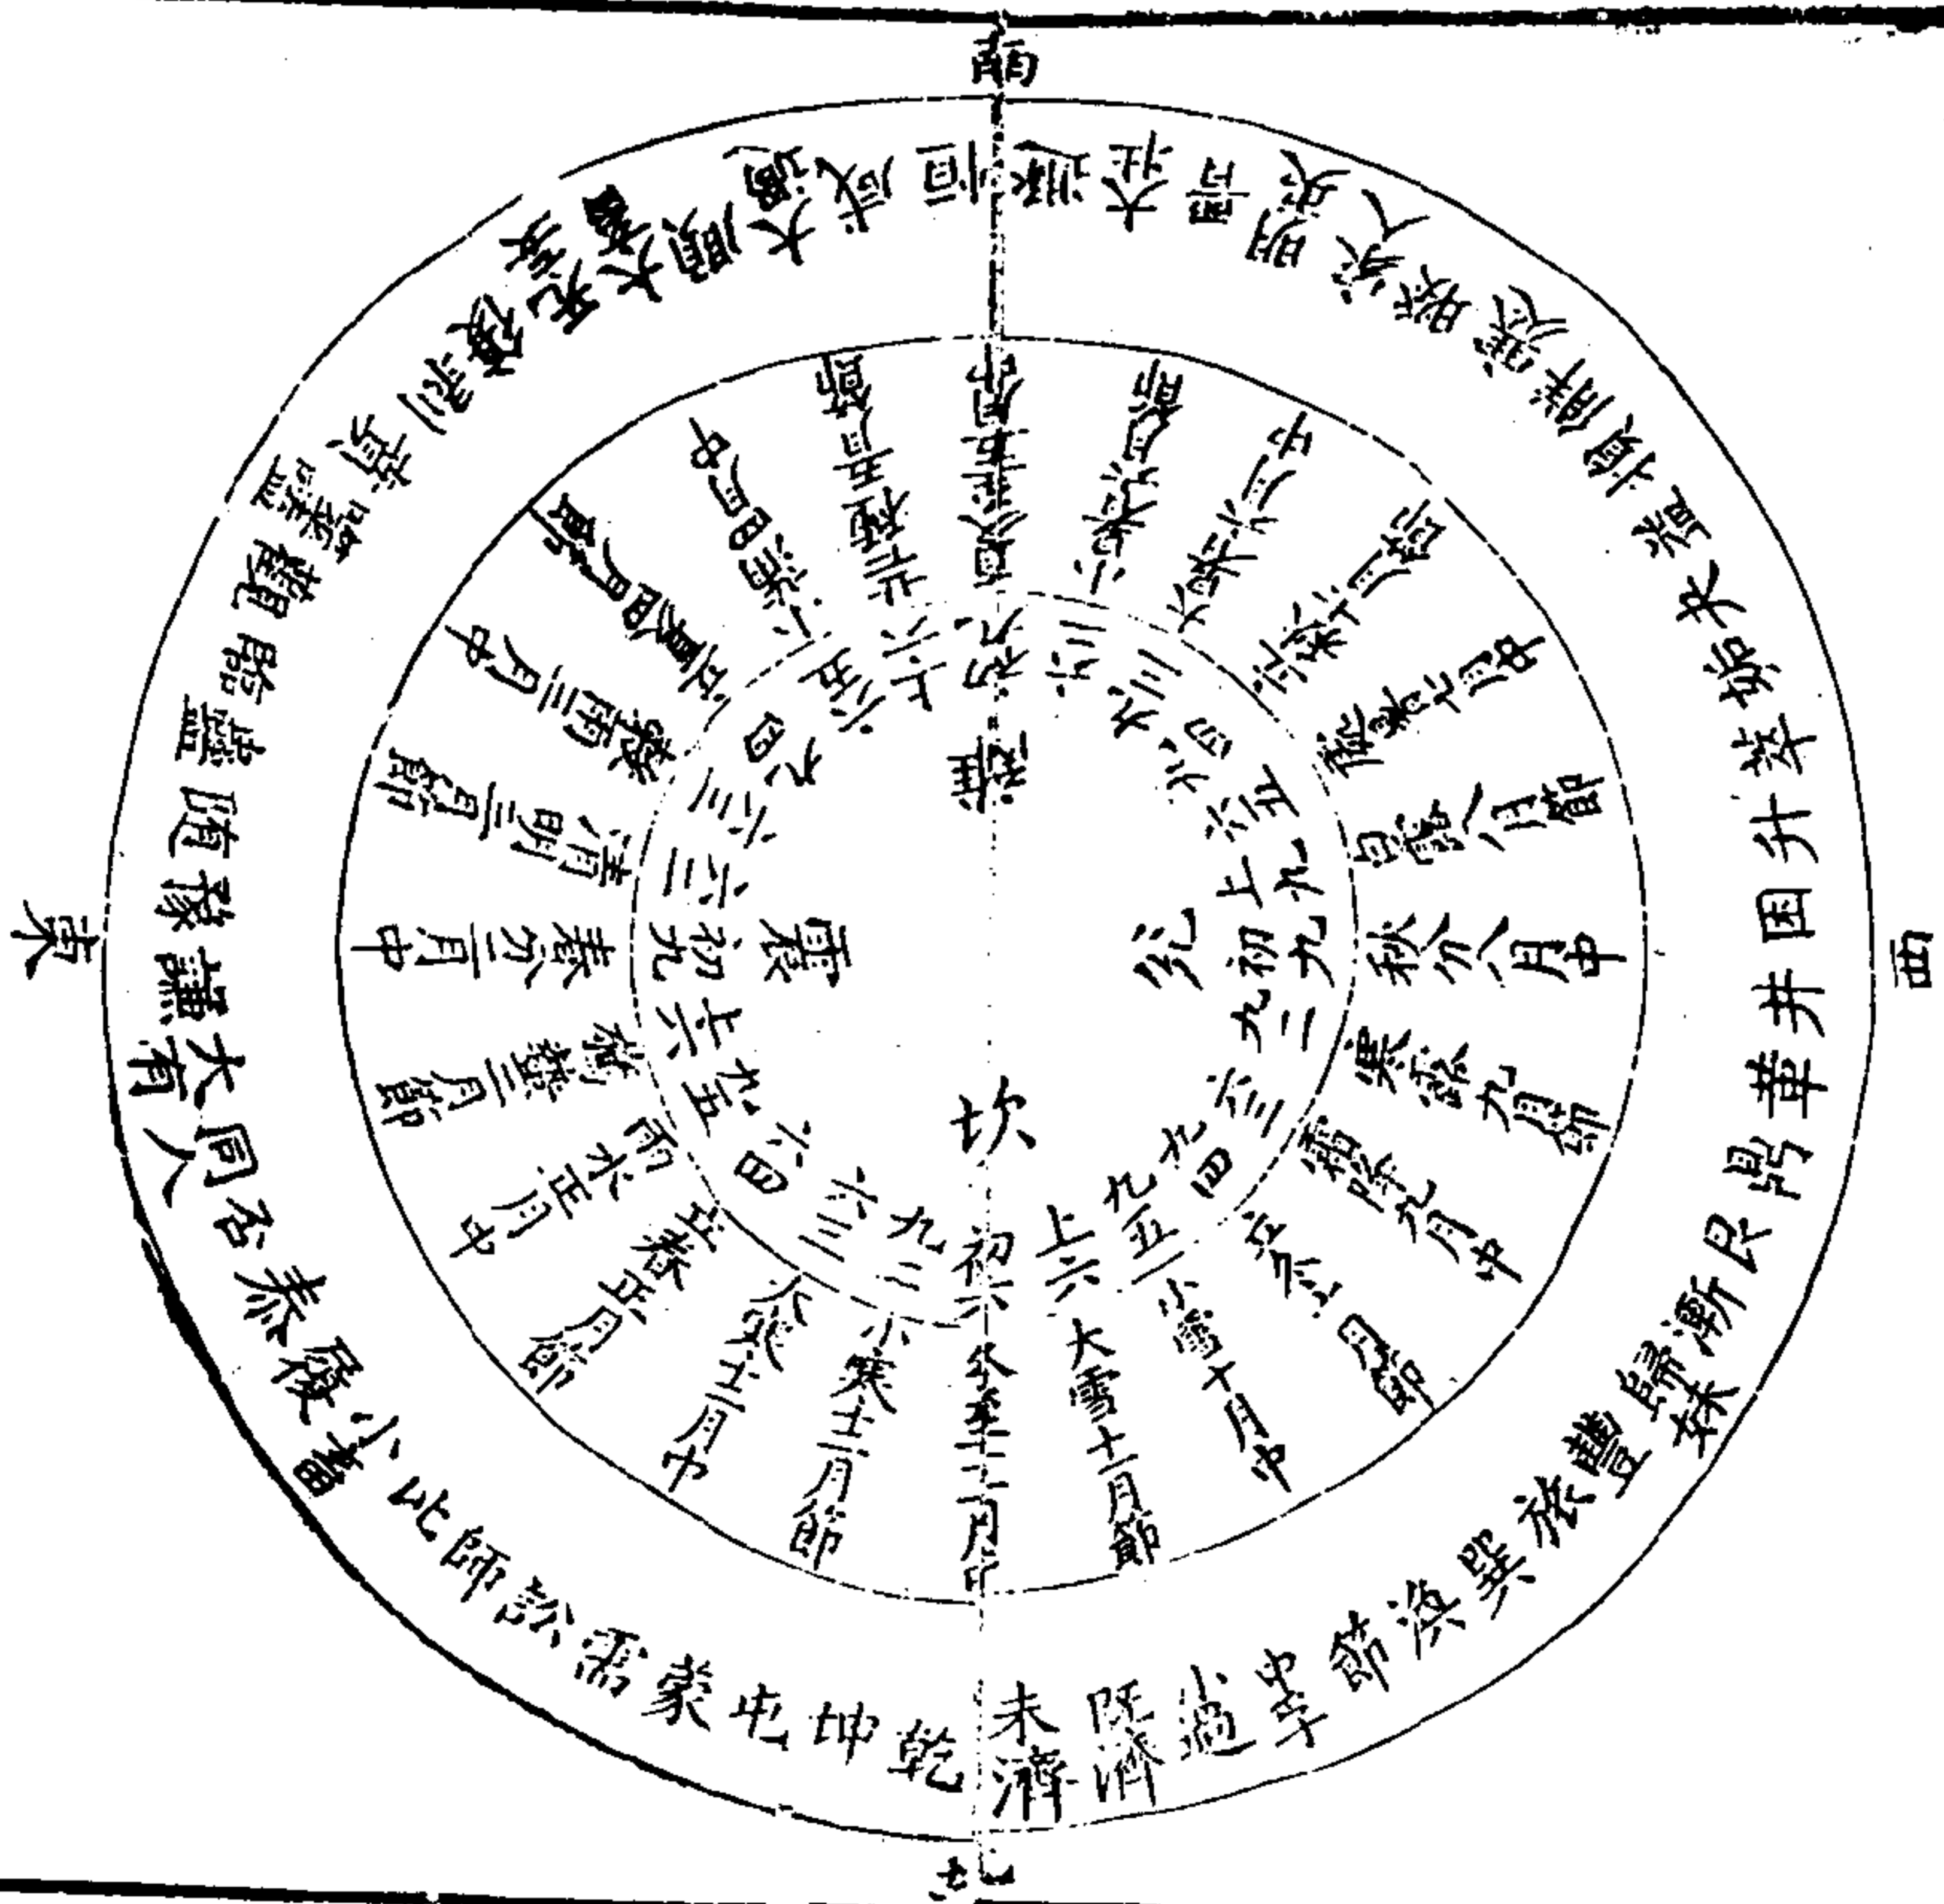 南
東
西
北
乾
坤
屯
蒙
需
訟
師
比
小畜
履
泰
否
同人
大有
謙
豫
隨
蠱
臨
觀
噬嗑
賁
剝
復
无妄
大畜
頤
大過
咸
恒
遯
大壯
晉
明夷
家人
睽
蹇
解
損
益
夬
姤
萃
升
困
井
革
鼎
艮
漸
歸妹
豐
旅
巽
渙
節
中孚
小過
既濟
未濟
冬至十一月中
小寒十二月節
大寒十二月中
立春正月節
雨水正月中
驚蟄二月節
春分二月中
清明三月節
穀雨三月中
立夏四月節
小滿四月中
芒種五月節
夏至五月中
小暑六月節
大暑六月中
立秋七月節
處暑七月中
白露八月節
秋分八月中
寒露九月節
霜降九月中
立冬十月節
小雪十月中
大雪十一月節
坎
初六
九二
六三
六四
九五
上六
震
初九
六二
六三
九四
六五
上六
離
初九
六二
九三
九四
六五
上九
兌
初九
九二
六三
九四
九五
上六